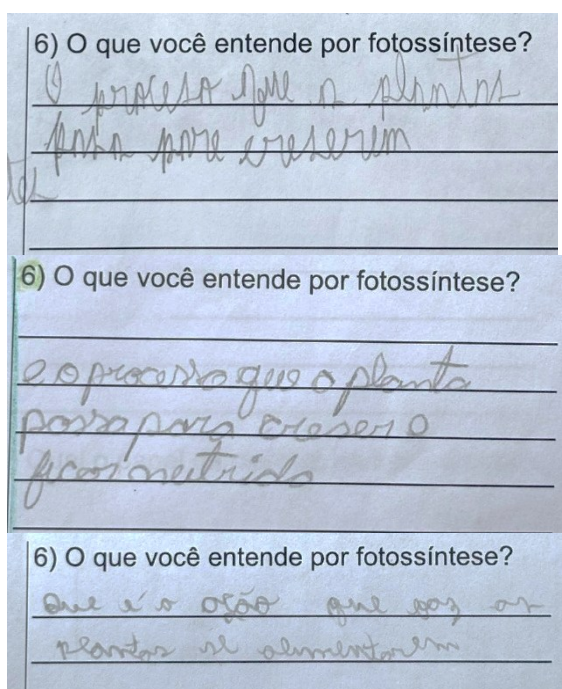 6) O que você entende por fotossíntese?
O proceso que a plantas
pasa para creserem
6) O que você entende por fotossíntese?
e o processo que a planta
passa para creser e
ficar nutrida
6) O que você entende por fotossíntese?
Que é a ação que faz as
plantas se alimentarem